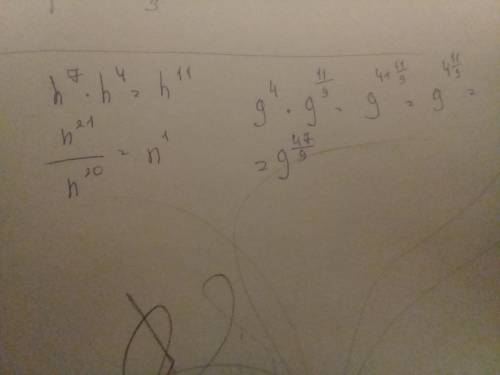 3
h⁷ · h⁴ = h¹¹
h²¹/h²⁰ = h¹
g⁴ · g^(11/9) = g^(4+11/9) = g^(4 11/9) =
= g^(47/9)